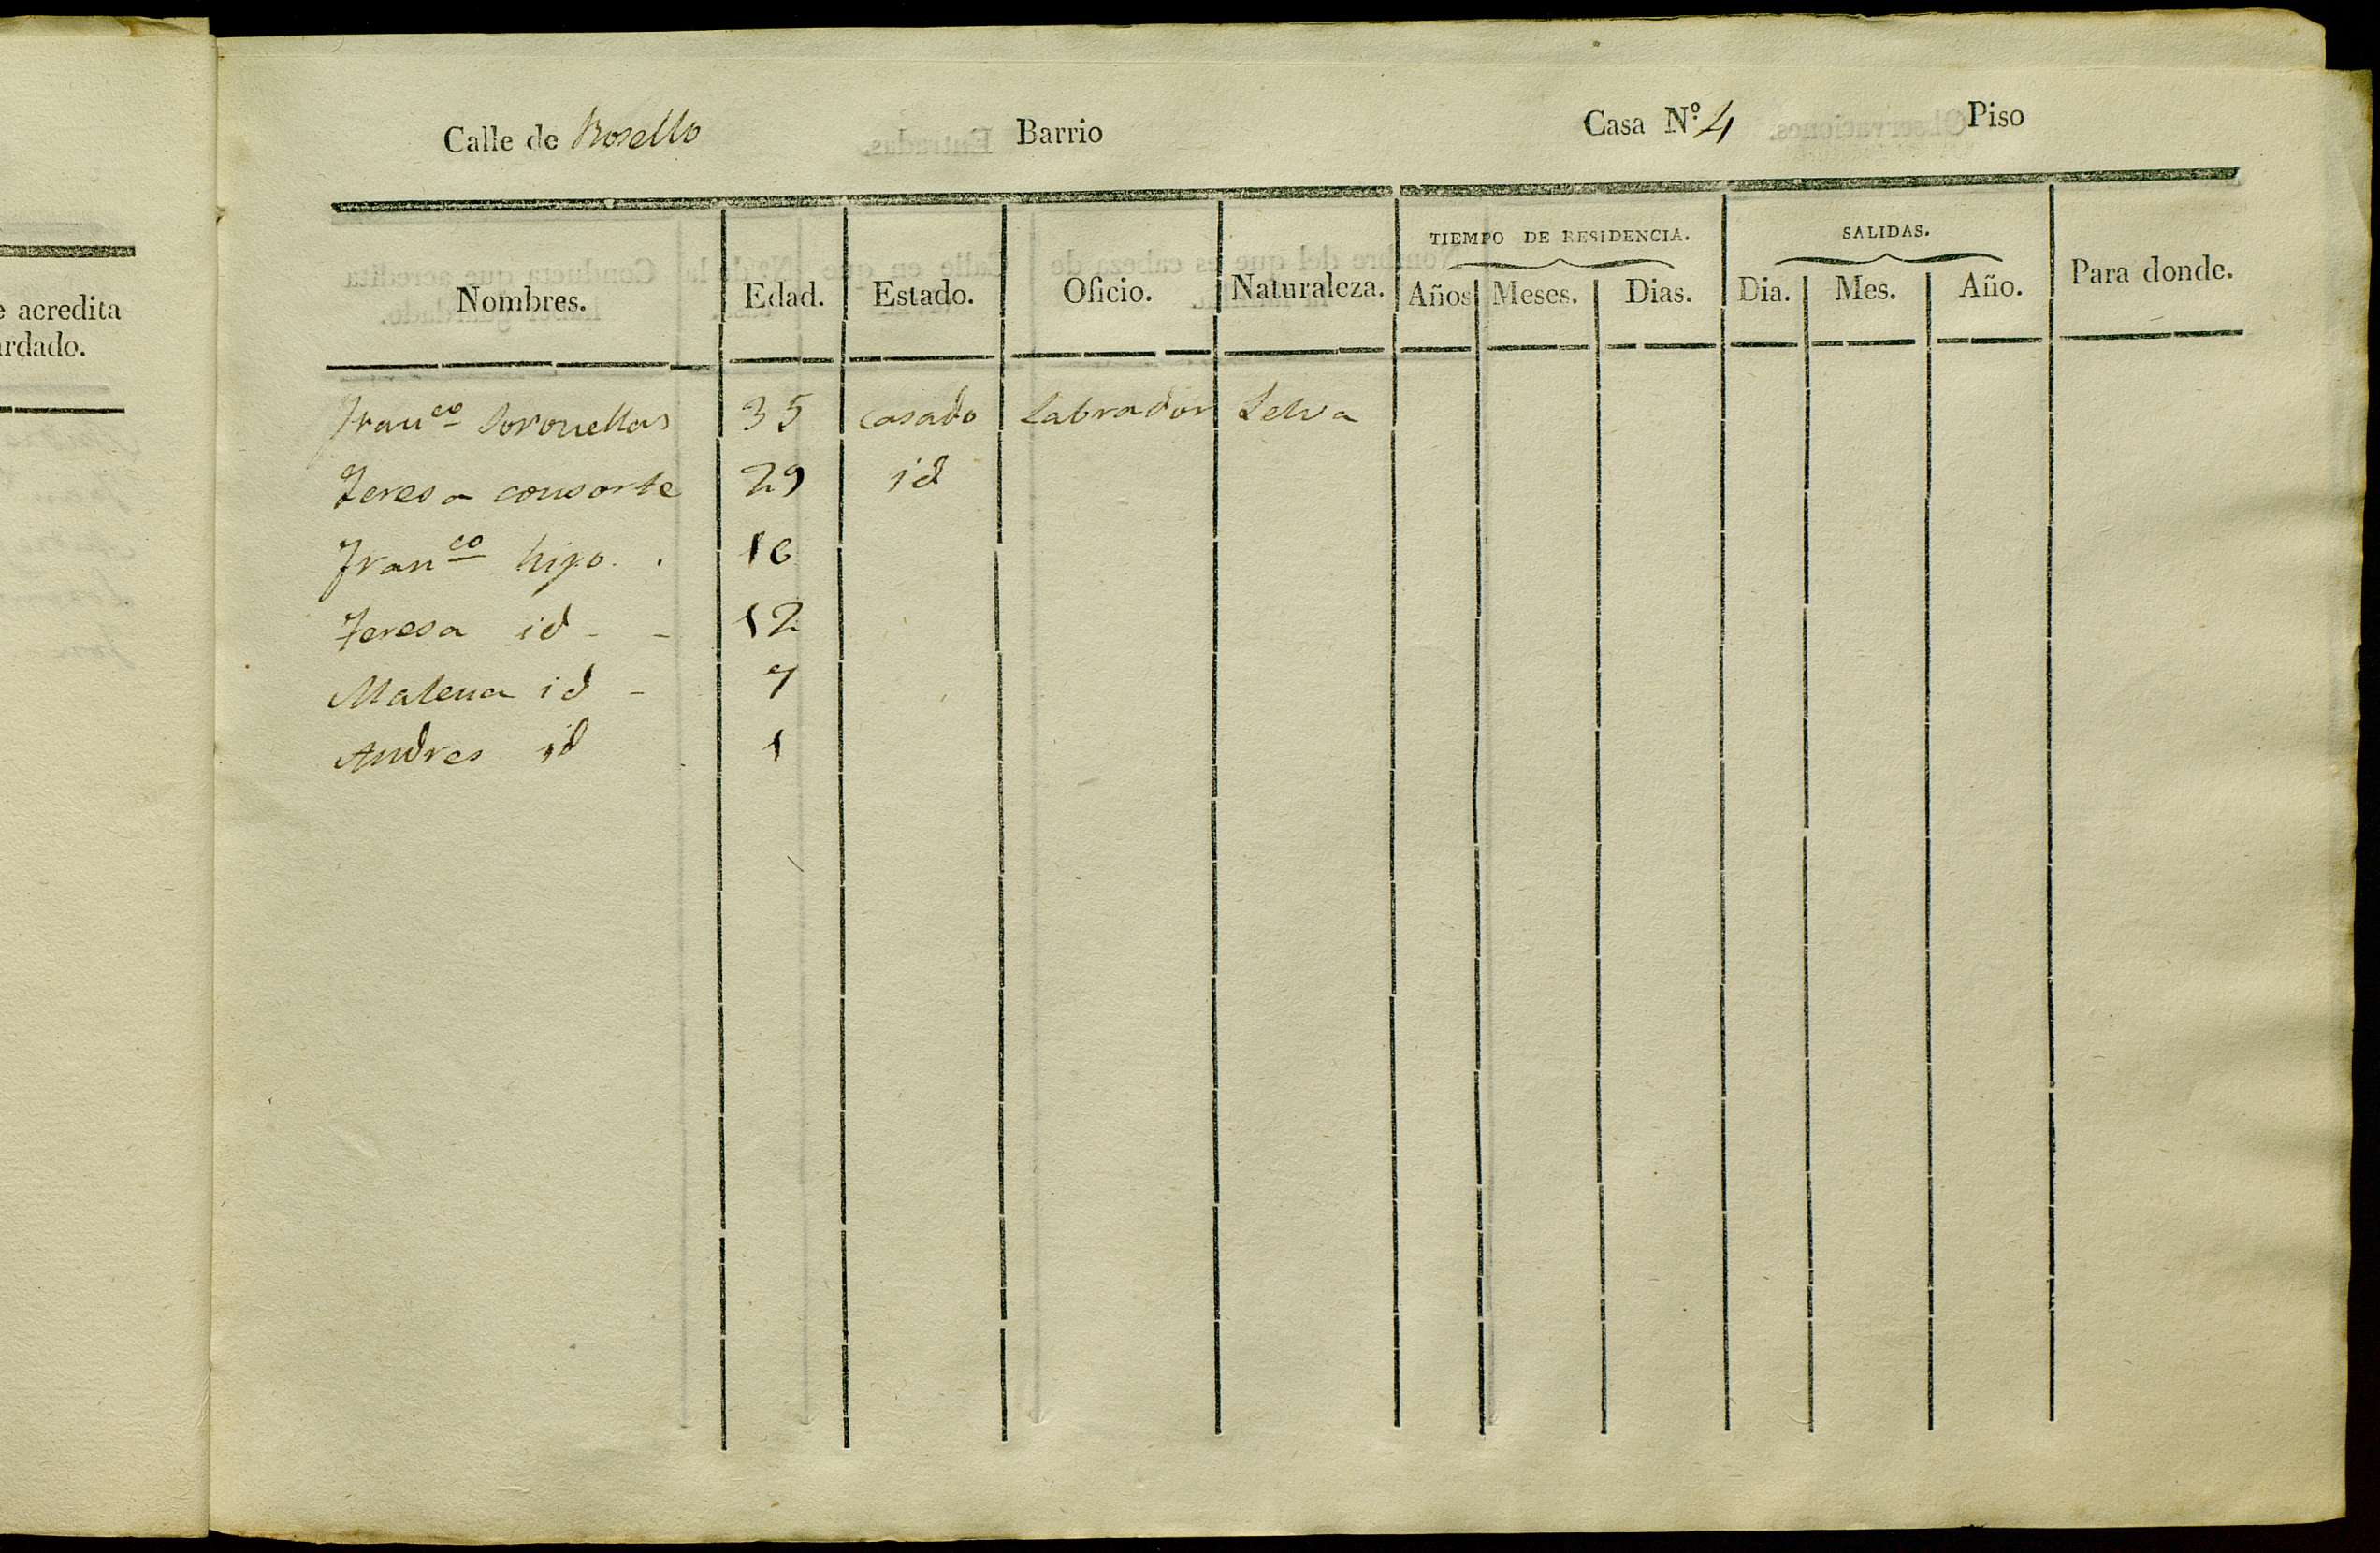 e acredita
ardado.
Calle de Rosello Barrio Casa N.º 4 Piso
TIEMPO DE RESIDENCIA. SALIDAS.
Nombres. Edad. Estado. Oficio. Naturaleza. Años Meses. Dias. Dia. Mes. Año. Para donde.
Franco Soronellas 35 casado Labrador Selva
Teresa consorte 29 id
Franco hijo . 16
Teresa id - - 12
Malena id - 7
Andres id 1